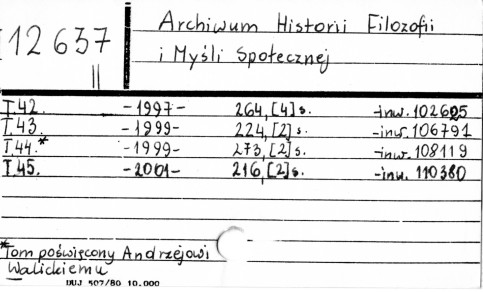 12 637
II
Archiwum Historii Filozofii
i Myśli Społecznej
T.42. -1997- 264,[4]s. -inw. 102625
T.43. -1999- 224,[2]s. -inw. 106791
T.44.* -1999- 273,[2]s. -inw. 108119
T.45. -2001- 216,[2]s. -inw. 110380
*Tom poświęcony Andrzejowi
Walickiemu
DUJ 507/80 10.000